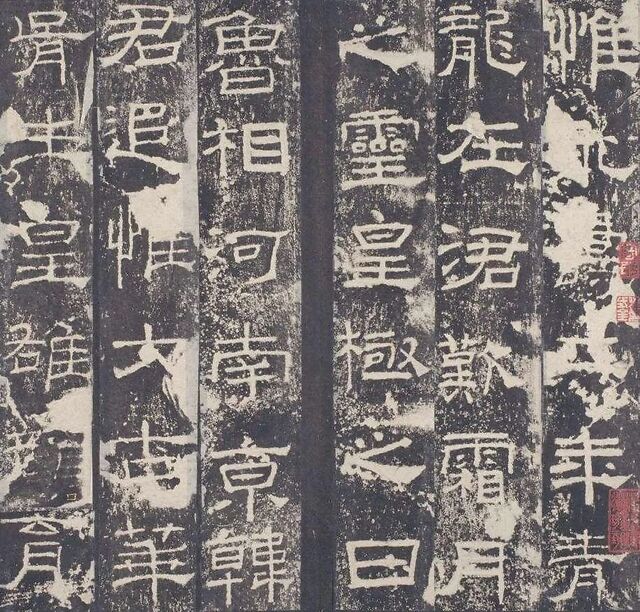 惟永壽二年青
龍在涒歎霜月
之靈皇極之日
魯相河南京韓
君追惟大古華
胥生皇雄顏育